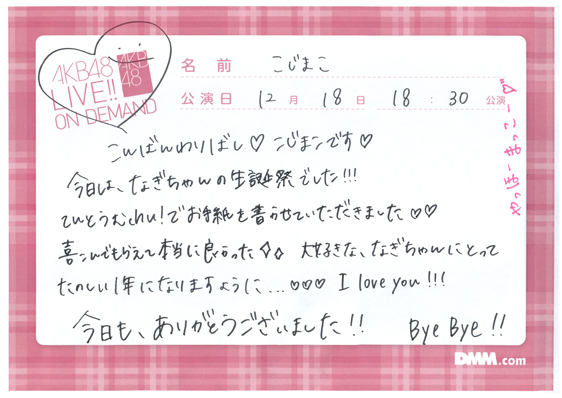 AKB48
LIVE!!
ON DEMAND
AKB
48
名前 こじまこ
公演日 12月18日 18:30公演
こんばんわりばし♡ こじまこです♡
今日は、なぎちゃんの生誕祭でした!!!
てんとうむchu!でお手紙を書かせていただきました♡♡
喜こんでもらえて本当に良かった 大好きな、なぎちゃんにとって
たのしい1年になりますように...♡♡♡ I love you!!!
今日も、ありがとうございました!! Bye Bye!!
やっほーまっこー
DMM.com